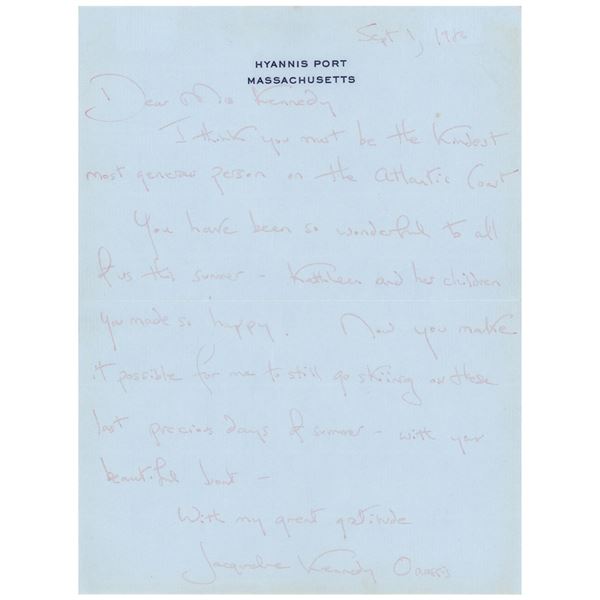 Sept 1, 198
HYANNIS PORT
MASSACHUSETTS
Dear Miss Kennedy
I think you must be the kindest
most generous person on the Atlantic Coast
You have been so wonderful to all
of us this summer – Kathleen and her children
you made so happy. Now you make
it possible for me to still go skiing on these
last precious days of summer – with your
beautiful boat –
With my great gratitude
Jacqueline Kennedy Onassis